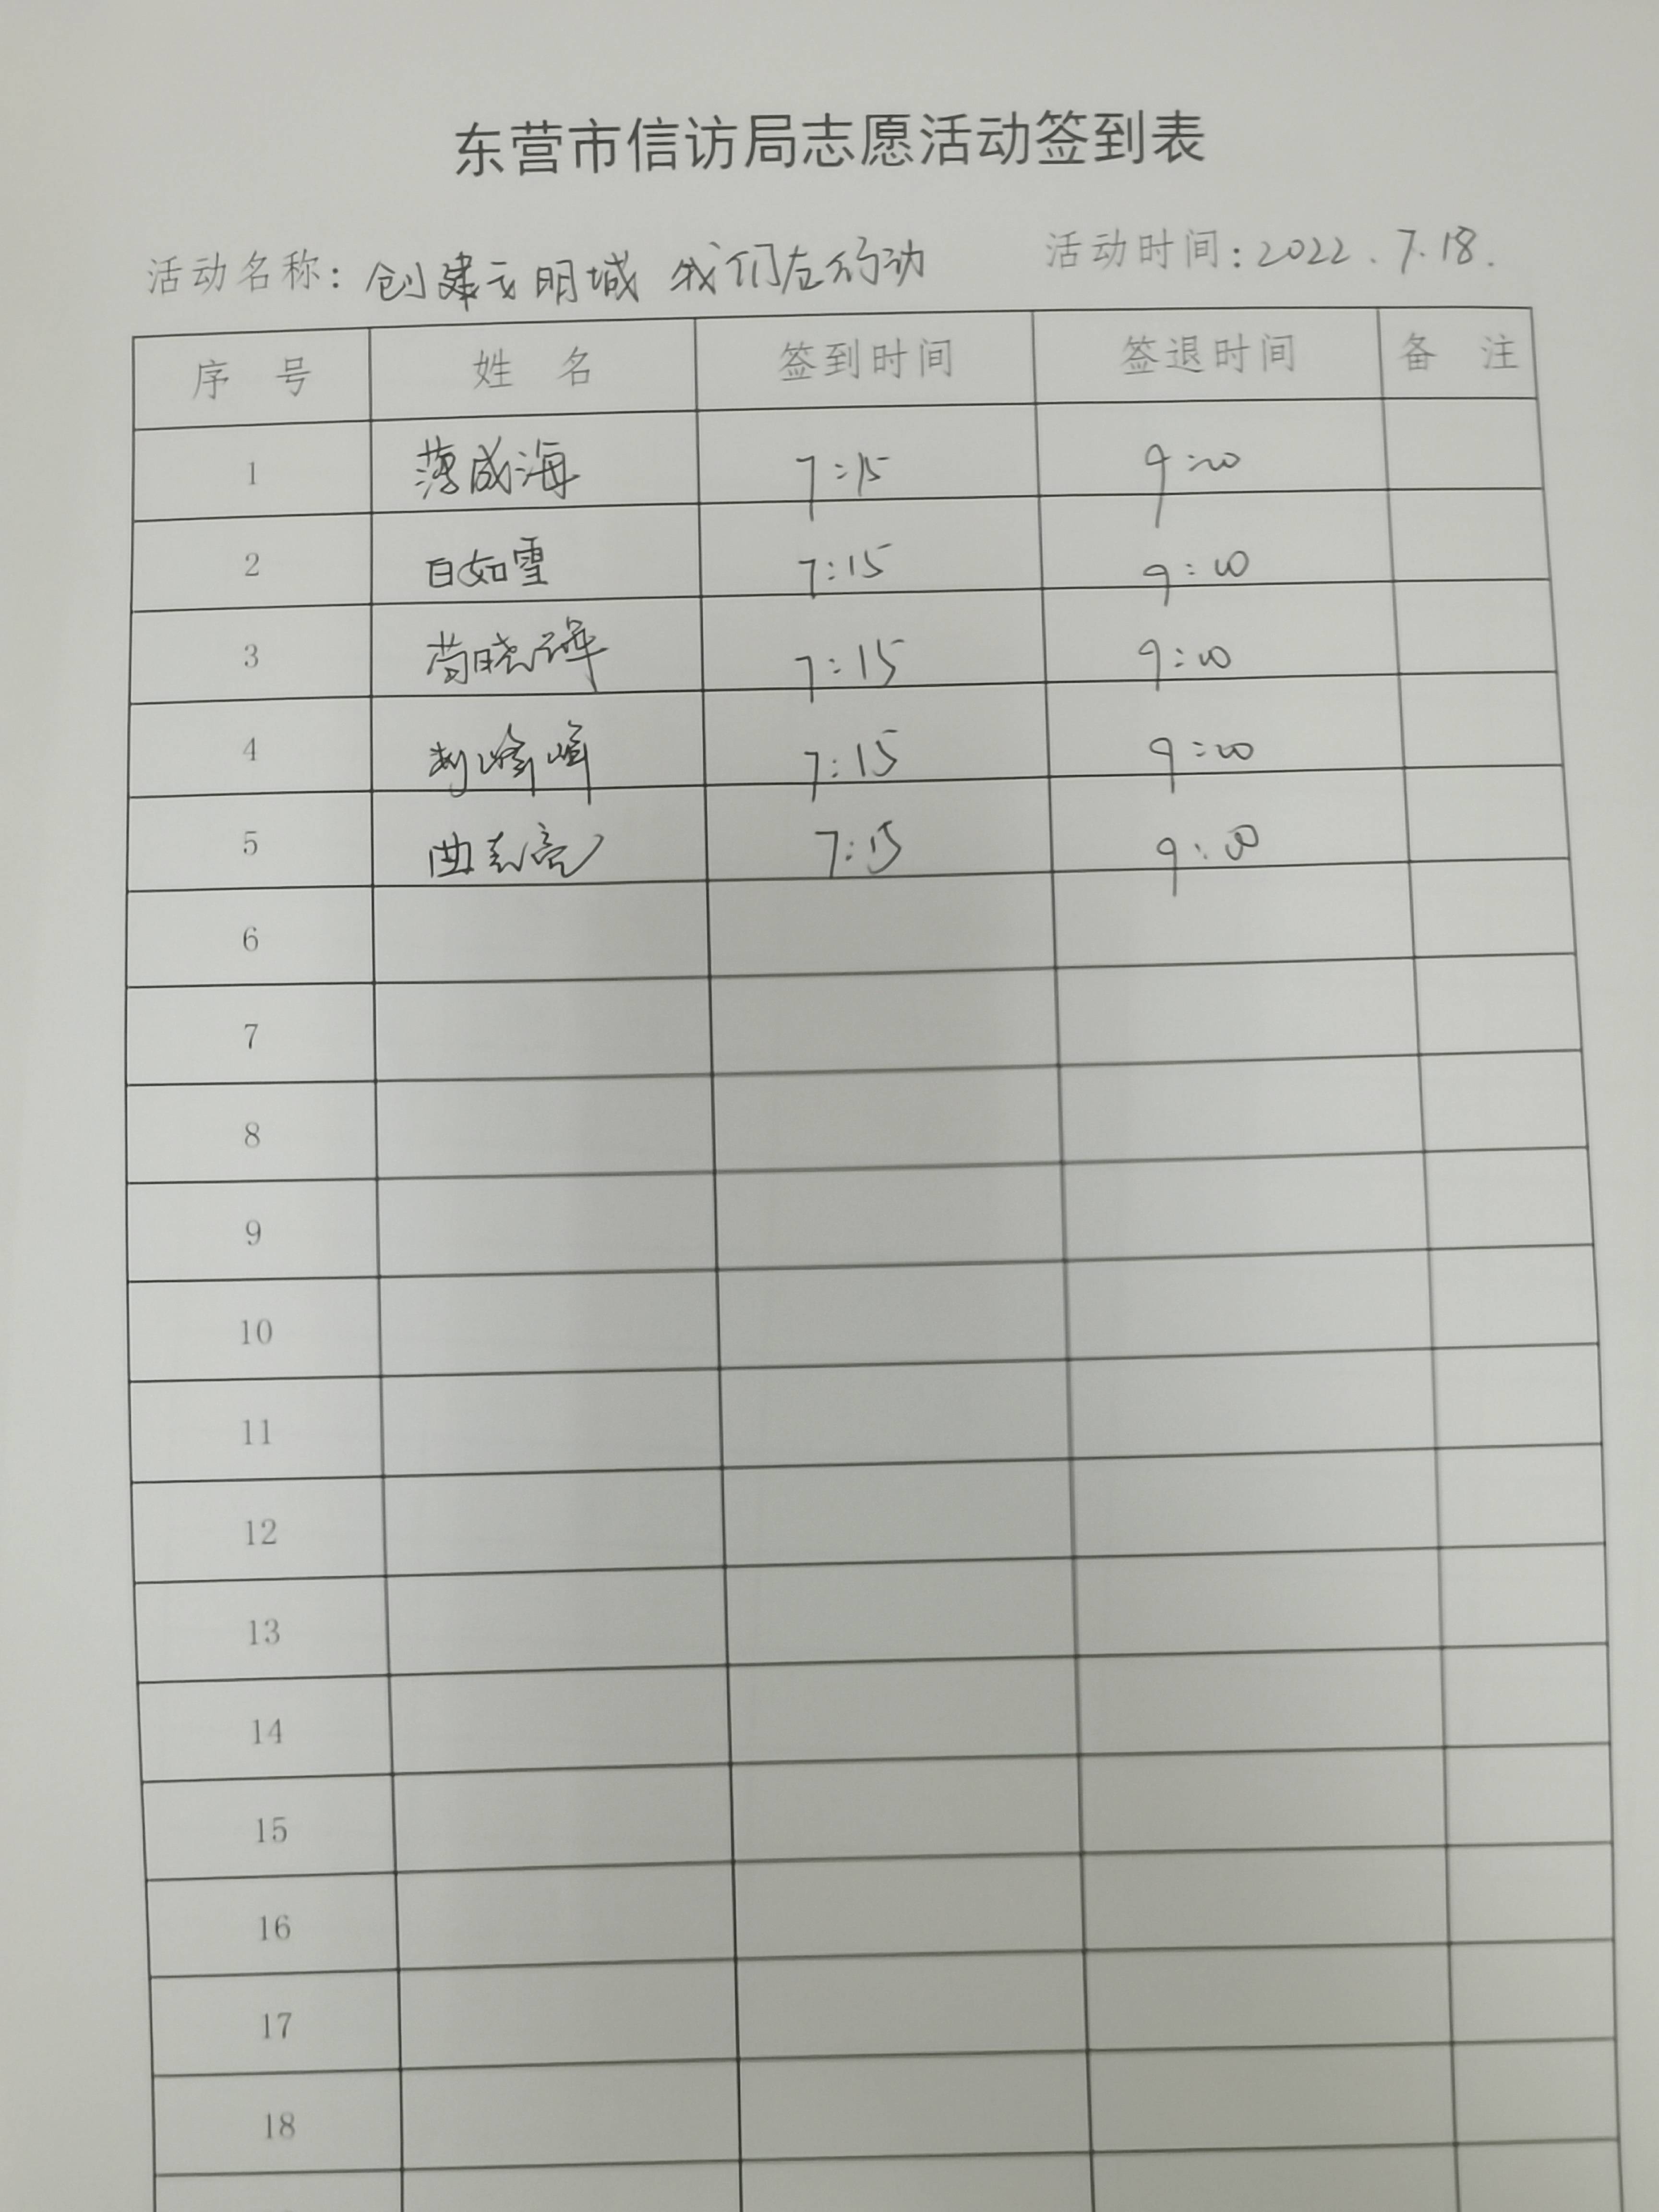 东营市信访局志愿活动签到表
活动名称：创建文明城 我们在行动 活动时间：2022.7.18.
序 号 姓 名 签到时间 签退时间 备 注
1 薄成海 7:15 9:00
2 白如雪 7:15 9:00
3 晓 7:15 9:00
4 刘峰 7:15 9:00
5 曲志亮 7:15 9:00
6
7
8
9
10
11
12
13
14
15
16
17
18